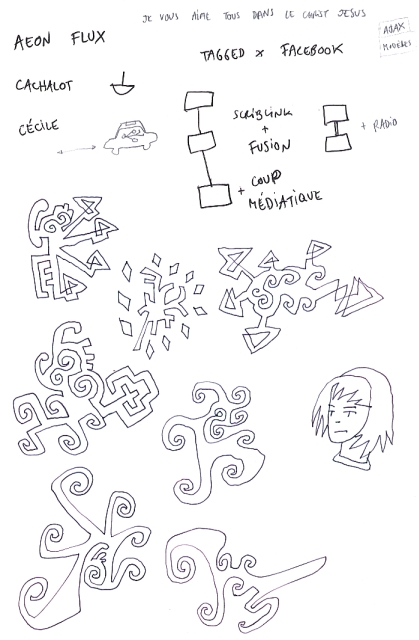 JE VOUS AIME TOUS DANS LE CHRIST JESUS
AJAX
MODÈLES
AEON FLUX
TAGGED x FACEBOOK
CACHALOT
CÉCILE
SCRIBLINK
+
FUSION
+ COUP
MÉDIATIQUE
+ RADIO